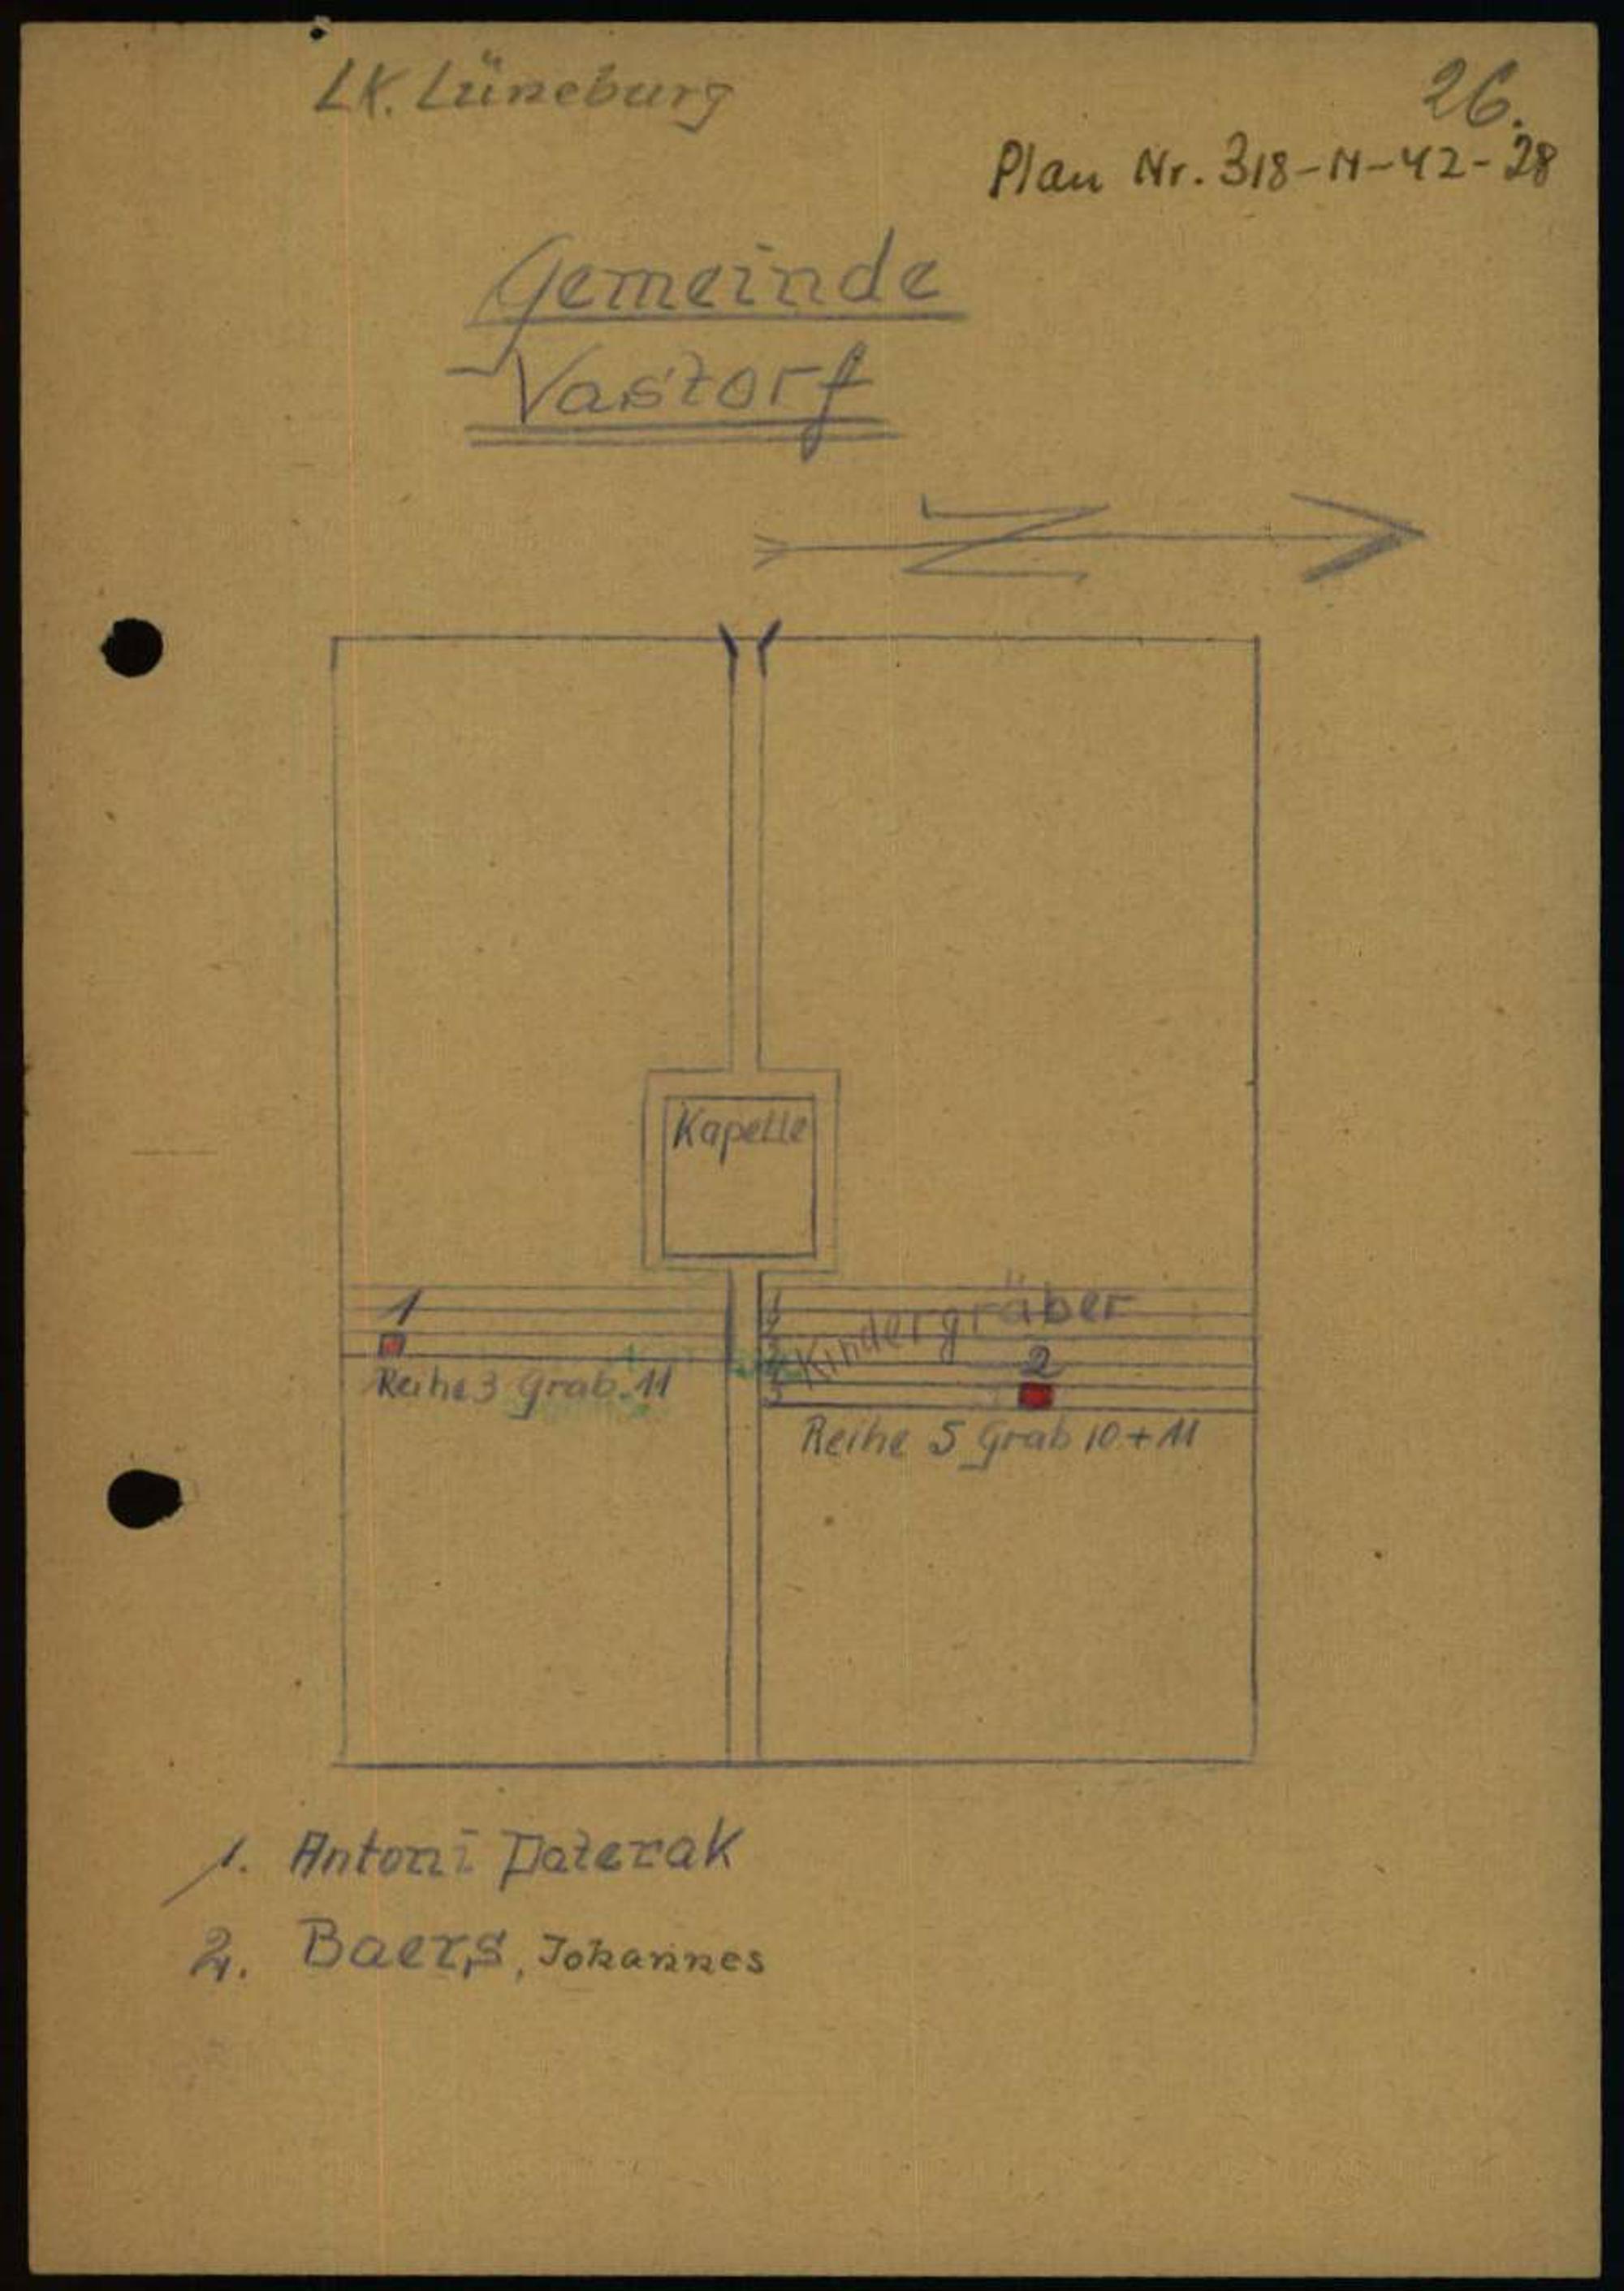 LK. Lüneburg
26.
Plan Nr. 318-N-42-28
Gemeinde
Vastorf
N
Kapelle
1
1
2
3
4
5
Kindergräber
2
Reihe 3 Grab. 11
Reihe 5 Grab 10 + 11
1. Antoni Paterak
2. Baers, Johannes